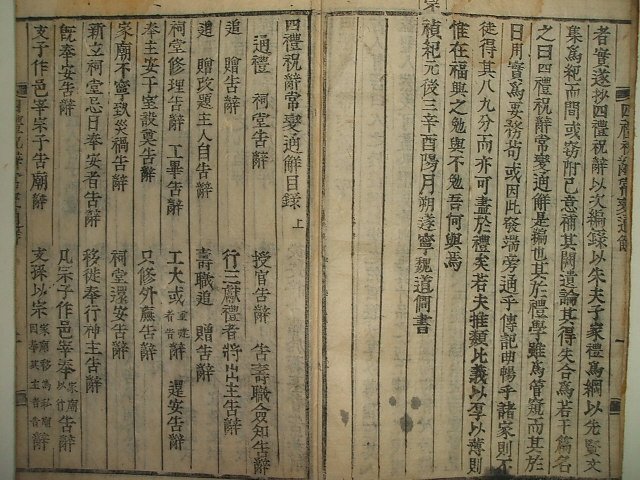 者實遂抄四禮祝辭以次編錄以朱夫子家禮爲綱以先賢文
集爲紀而間或窃附己意補其闕遺論其得失合爲若干篇名
之曰四禮祝辭常變通解是編也其於禮學雖爲管窺而其於
日用實爲要務苟或因此發端旁通乎傳記曲暢乎諸家則不
徒得其八九分而亦可盡於禮矣若夫推類比義以厚以薄則
惟在福興之勉與不勉吾何與焉
禎紀元後三辛酉陽月朔遂寧魏道僩書
四禮祝辭常變通解目錄 上
通禮 祠堂告辭
授官告辭 告壽職僉知告辭
追 贈告辭
行三獻禮者將出主告辭
追 贈改題主人自告辭
壽職追 贈告辭
祠堂修理告辭 工畢告辭
工大或重建者告辭 還安告辭
奉主安于室設奠告辭
只修外廳告辭
家廟不寧致災禍告辭
祠堂還安告辭
新立祠堂忌日奉安者告辭
移徙奉行神主告辭
旣奉安告辭
凡宗子作邑宰奉家廟以行告辭
支子作邑宰宗子告廟辭
支孫以宗家廟移爲私廟